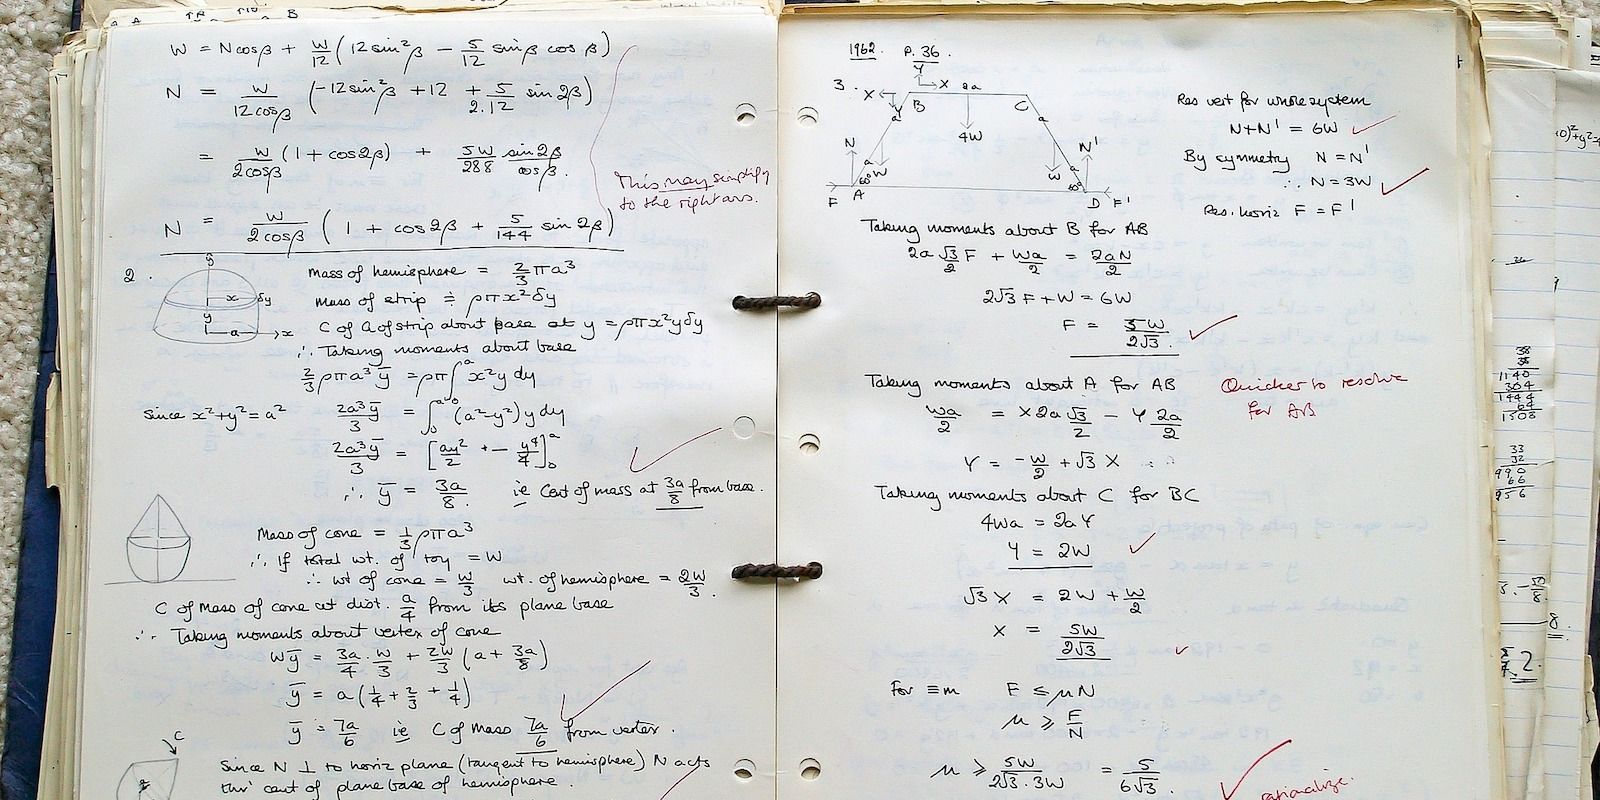 W = Ncosβ + W/12 (12 sin²β − 5/12 sinβ cos β)
N = W/12cosβ (−12sin²β + 12 + 5/2.12 sin 2β)
= W/2cosβ (1 + cos2β) + 5W/288 sin2β/cosβ.
This may simplify
to the right ans.
N = W/2cosβ ( 1 + cos 2β + 5/144 sin 2β)
2.
x δy
y
a x
Mass of hemisphere = 2/3 πa³
Mass of strip ≑ ρπx²δy
C of G of strip about base at y = ρπx²yδy
∴ Taking moments about base
2/3 ρπa³ȳ = ρπ∫ᵃ₀ x²y dy
Since x²+y²=a² 2a³ȳ/3 = ∫ᵃ₀ (a²−y²) y dy
2a³ȳ/3 = [ay²/2 − y⁴/4]ᵃ₀
∴ ȳ = 3a/8. ie Cent of mass at 3a/8 from base.
Mass of cone = 1/3 ρπa³
∴ If total wt. of toy = W
∴ wt of cone = W/3 wt. of hemisphere = 2W/3.
C of Mass of cone at dist. a/4 from its plane base
∴ Taking moments about vertex of cone
Wȳ = 3a/4 . W/3 + 2W/3 (a + 3a/8)
ȳ = a (1/4 + 2/3 + 1/4)
ȳ = 7a/6 ie C of Mass 7a/6 from vertex.
C
Since N ⊥ to horiz plane (tangent to hemisphere) N acts
thr' cent of plane base of hemisphere.
1962. P. 36
3.
Y
X X 2a
B C
a a
4W
N N'
a a
W W
60° 60°
F A D F'
Res vert for whole system
N+N' = 6W
By symmetry N = N'
∴ N = 3W
Res. horiz F = F'
Taking moments about B for AB
2a √3/2 F + Wa/2 = 2aN/2
2√3 F + W = 6W
F = 5W/2√3.
Taking moments about A for AB
Quicker to resolve
for AB
Wa/2 = X 2a √3/2 − Y 2a/2
Y = −W/2 + √3 X
Taking moments about C for BC
4Wa = 2aY
Y = 2W
√3 X = 2W + W/2
X = 5W/2√3
For ≡m F ≤ μN
μ ≥ F/N
μ ≥ 5W/2√3.3W = 5/6√3.
rationalize.
38
38
1140
304
1444
64
1508
33
32
990
66
956
8.
2.